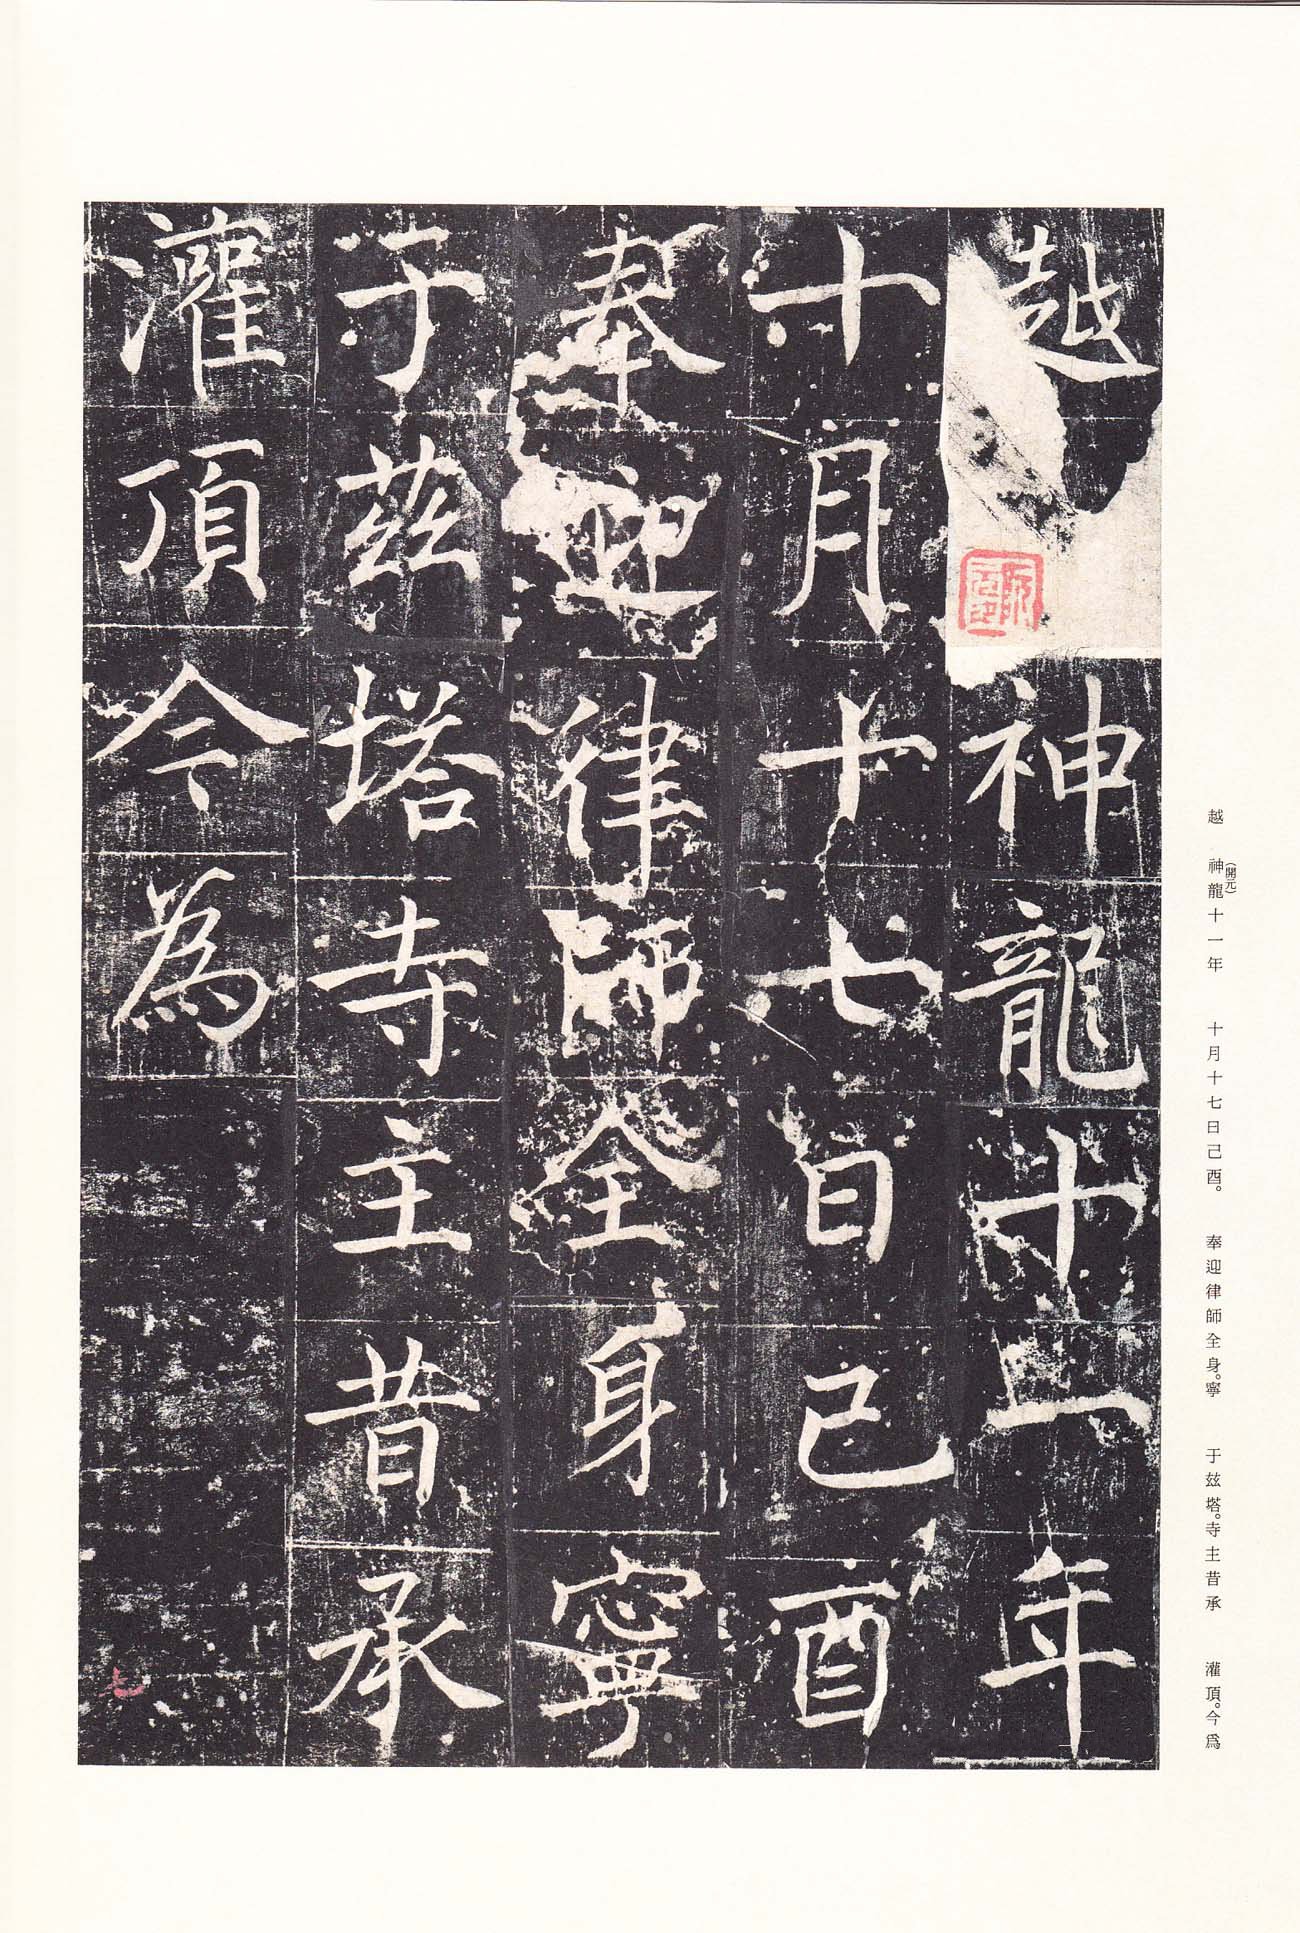 越 神龍十一年
十月十七日己酉
奉迎律師全身寧
于茲塔寺主昔承
灌頂今為
越 神龍十一年 十月十七日己酉。 奉迎律師全身。寧 于玆塔。寺主昔承 灌頂。今爲
(開元)